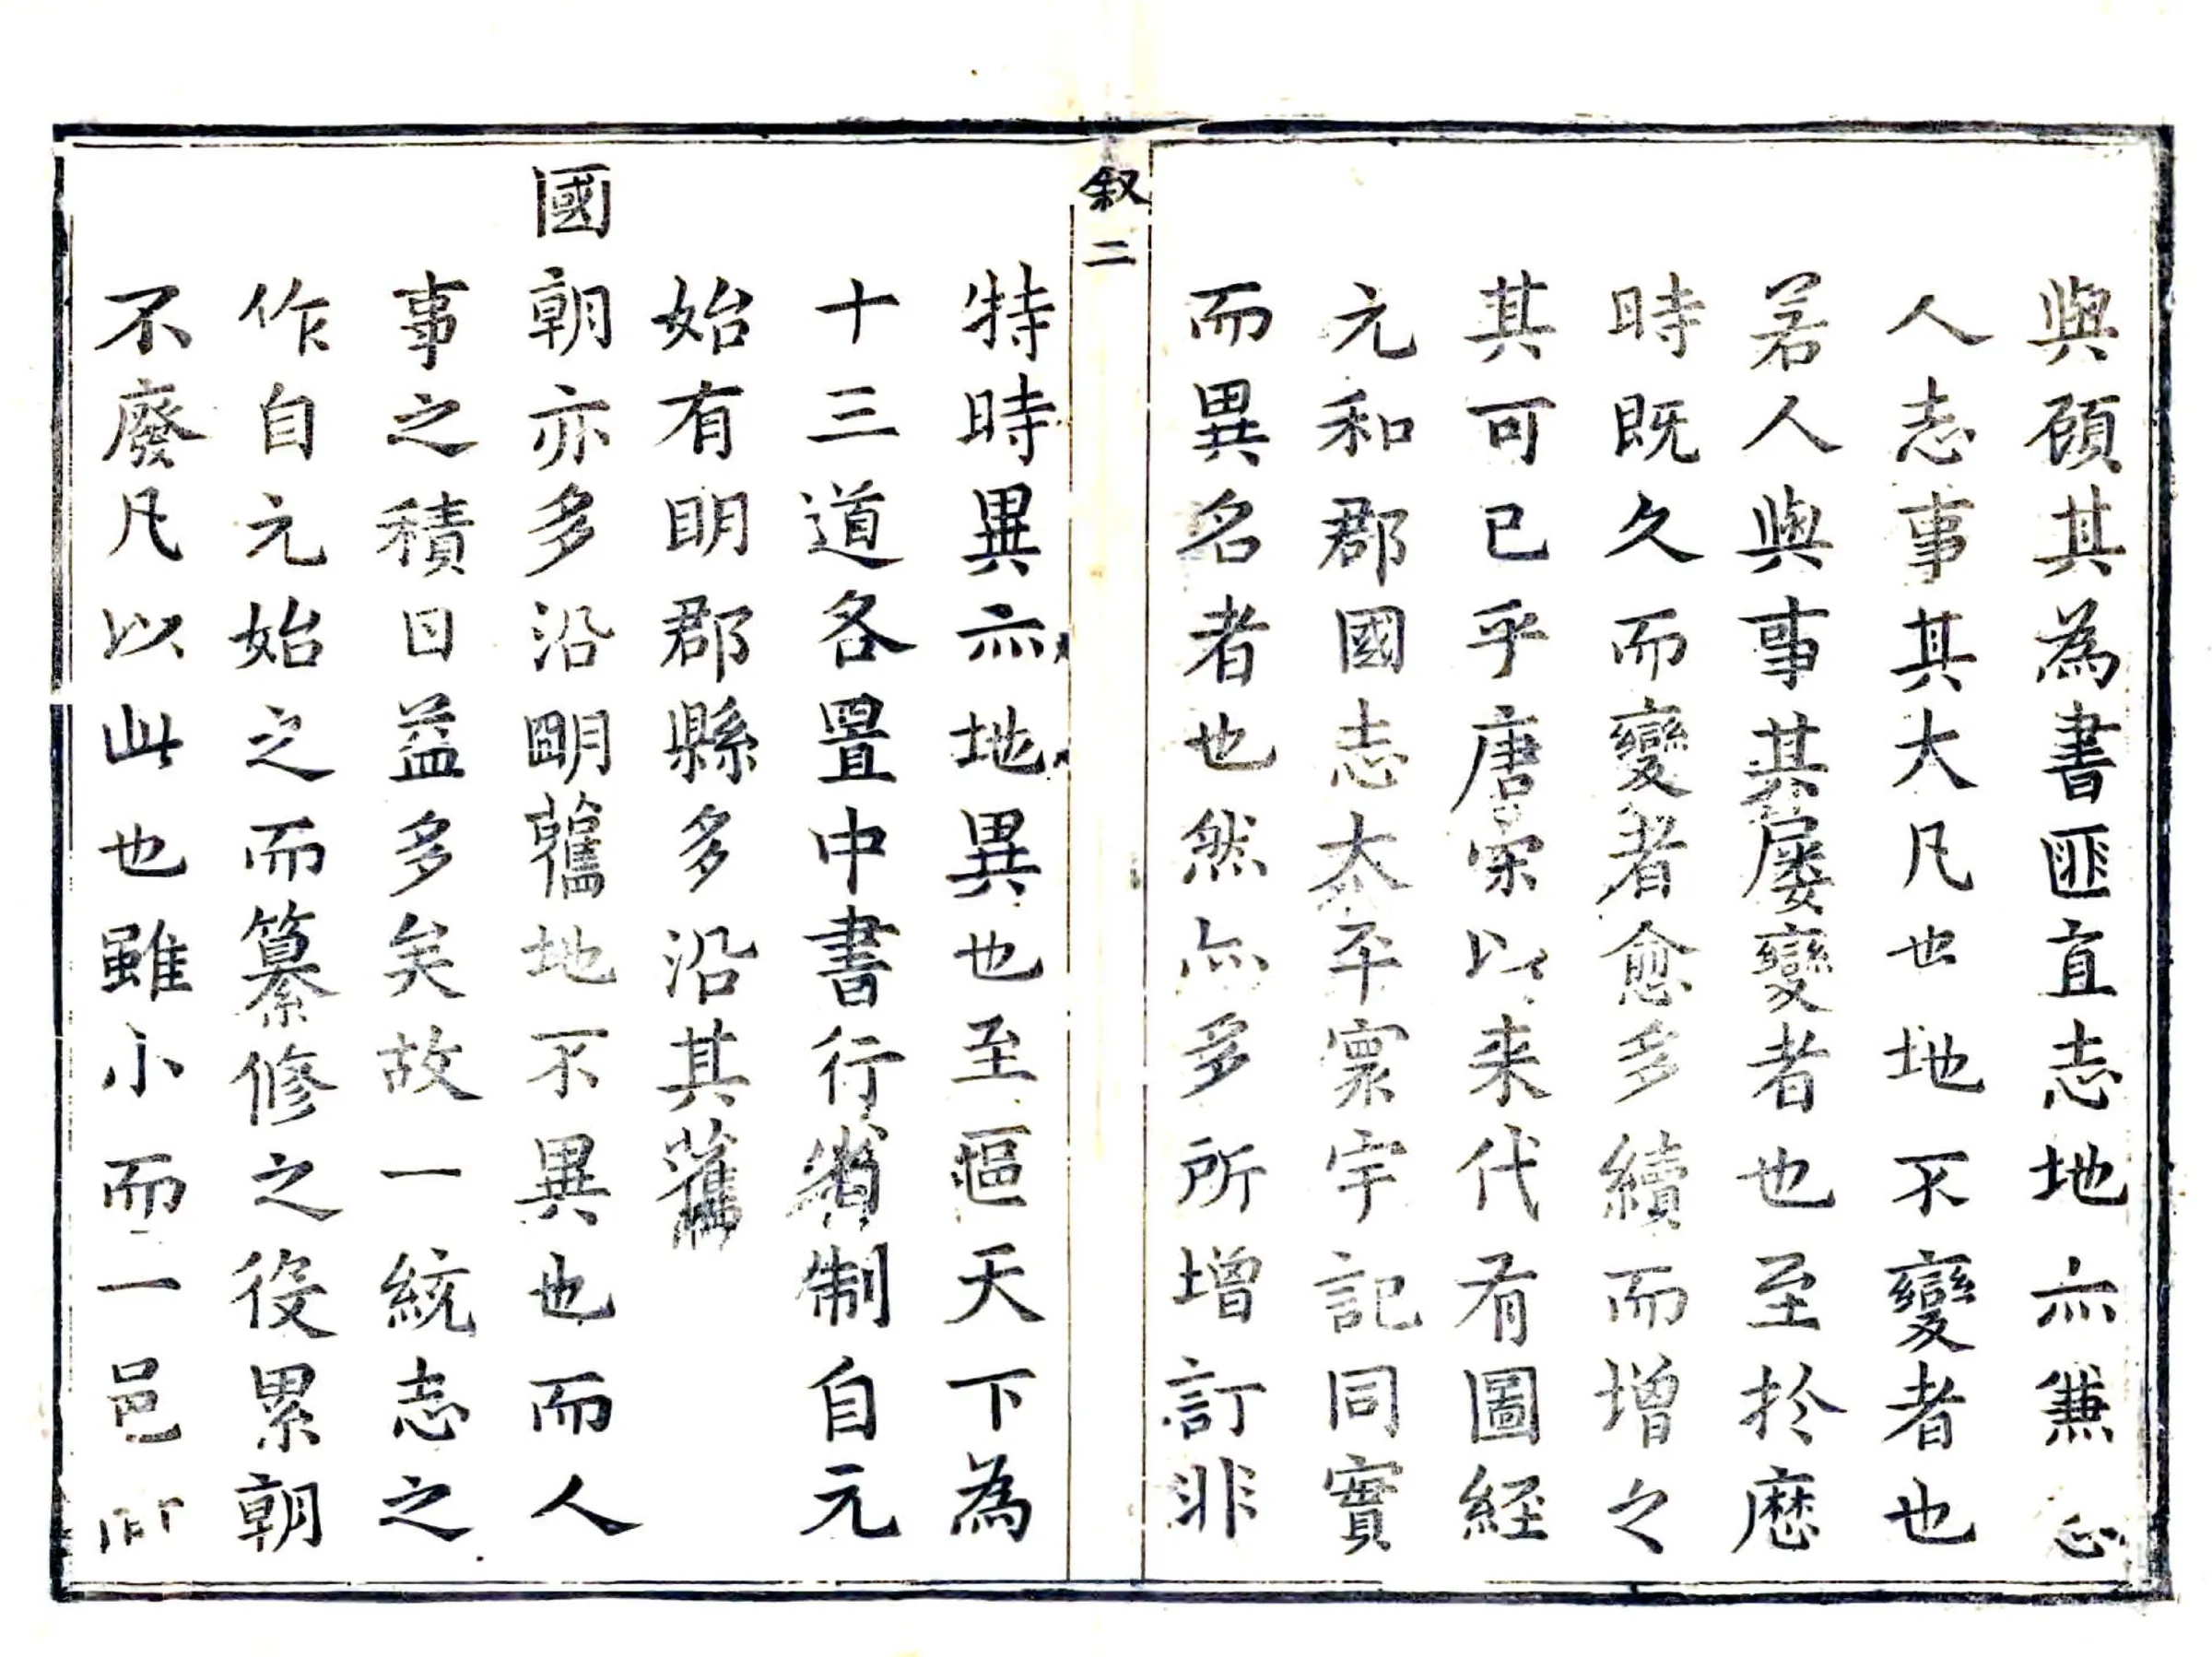 與顧其為書匪直志地亦兼志
人志事其大凡也地不變者也
若人與事其屢變者也至扵厯
時既久而變者愈多續而增之
其可已乎唐宋以来代有圖經
元和郡國志太平寰宇記同實
而異名者也然亦多所增訂非
叙二
特時異亦地異也至區天下為
十三道各置中書行省制自元
始有明郡縣多沿其舊
國朝亦多沿朙舊地不異也而人
事之積日益多矣故一統志之
作自元始之而纂修之役累朝
不廢凡以此也雖小而一邑